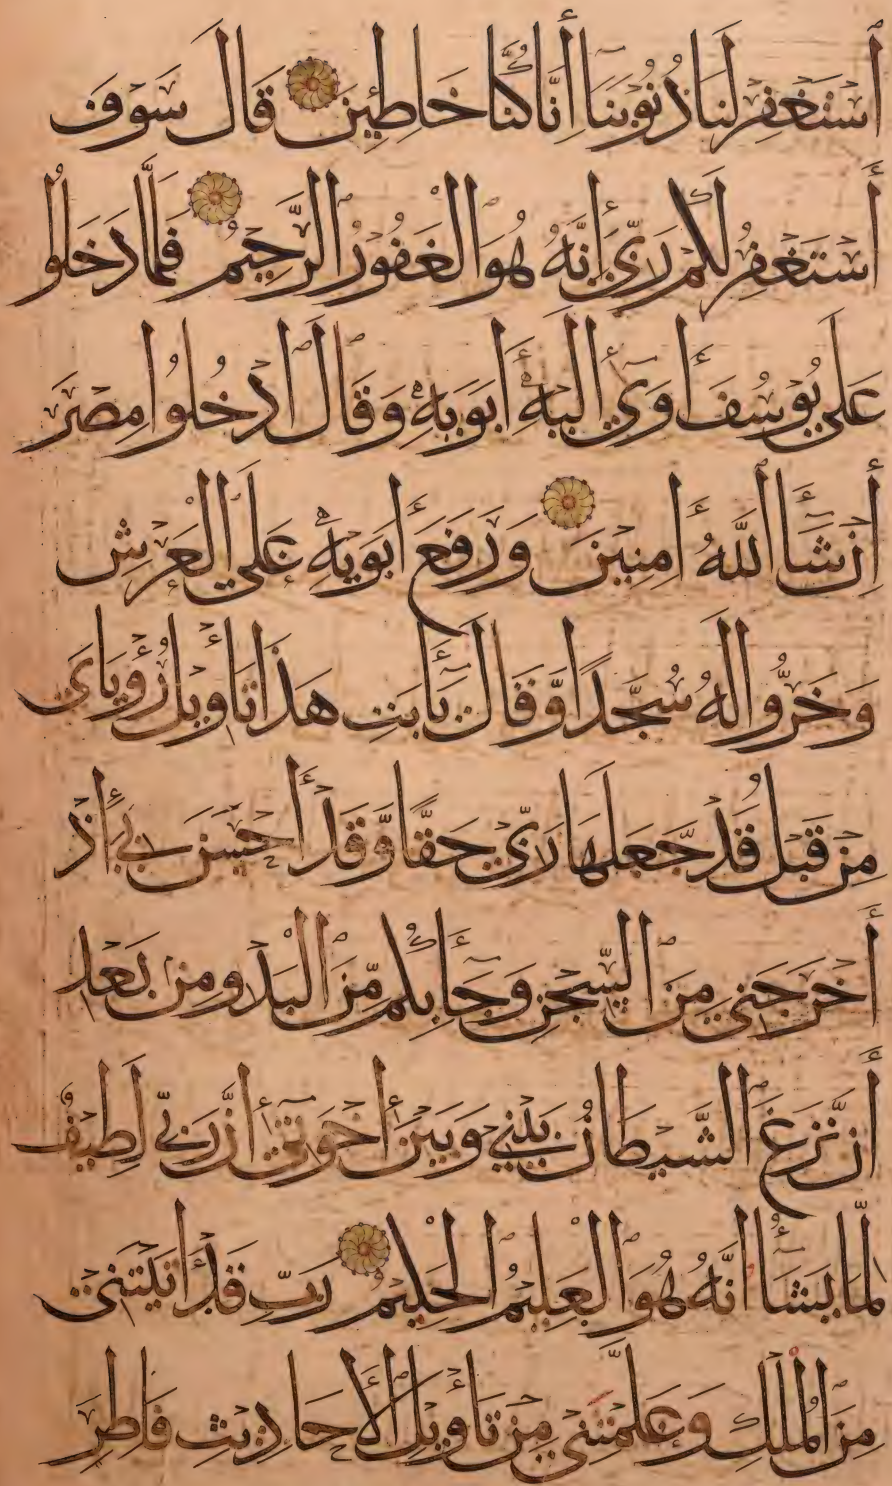 أَسْتَغْفِرْ لَنَا ذُنُوبَنَا أَنَّا كُنَّا خَاطِئِينَ قَالَ سَوْفَ
أَسْتَغْفِرُ لَكُمْ رَبِّي إِنَّهُ هُوَ الْغَفُورُ الرَّحِيمُ فَلَمَّا دَخَلُوا
عَلَى يُوسُفَ أَوَى أَلَيْهِ أَبَوَيْهِ وَقَالَ ادْخُلُوا مِصْرَ
أِنْ شَآ اللَّهُ أَمِنِينَ وَرَفَعَ أَبَوَيْهِ عَلَى الْعَرْشِ
وَخَرُّوا لَهُ سُجَّدًا وَّقَالَ يَأَبَتِ هَذَا تَأْوِيلُ رُؤْيَايَ
مِنْ قَبْلُ قَدْ جَّعَلَهَا رَبِّي حَقًّا وَّقَدْ أَحْسَنَ بِي أِذْ
أَخْرَجَنِي مِنَ السِّجْنِ وَجَآ بِكُمْ مِّنَ الْبَدْوِ مِنْ بَعْدِ
أَنْ نَّزَغَ الشَّيْطَانُ بَيْنِي وَبَيْنَ أِخْوَتِي أِنَّ رَبِّي لَطِيفٌ
لِّمَا يَشَآُ انَّهُ هُوَ الْعَلِيمُ الْحَكِيمُ رَبِّ قَدْ أَتَيْتَنِي
مِنَ الْمُلْكِ وَعَلَّمْتَنِي مِنْ تَأْوِيلِ الْأَحَادِيثِ فَاطِرَ